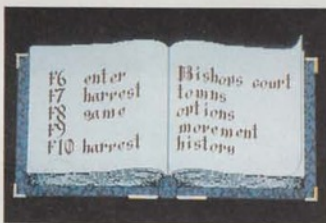 F6 enter
F7 harvest
F8 game
F9
F10 harvest
Bishops court
towns
options
movement
history